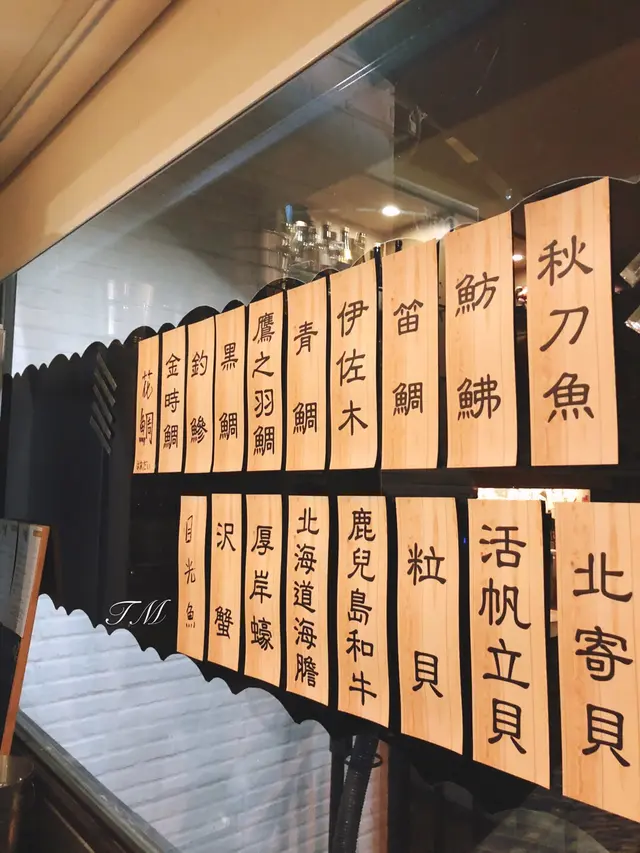 秋刀魚
魴鮄
笛鯛
伊佐木
青鯛
鷹之羽鯛
黑鯛
釣鰺
金時鯛
花鯛
北寄貝
活帆立貝
粒貝
鹿兒島和牛
北海道海膽
厚岸蠔
沢蟹
目光魚
TM